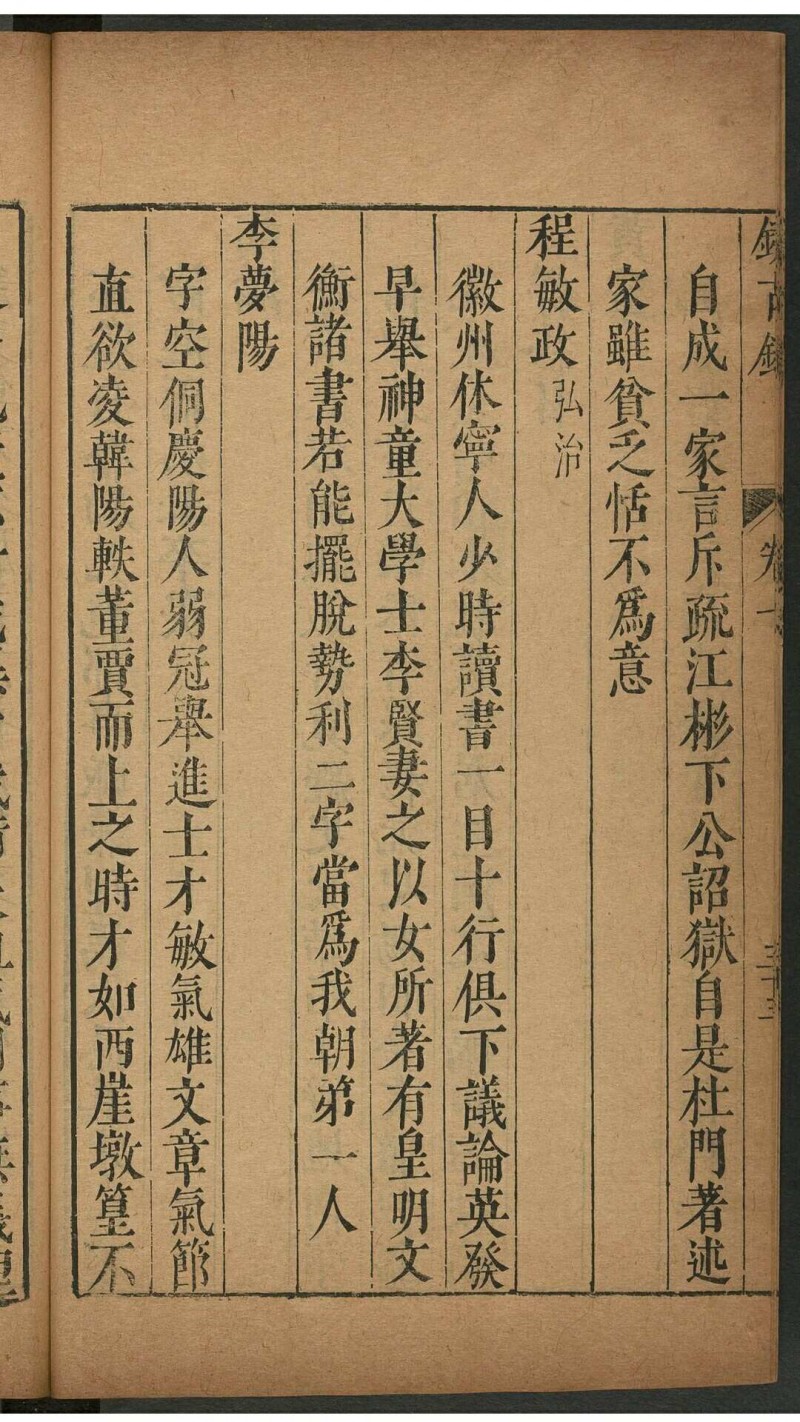 自成一家言斥疏江彬下公詔獄自是杜門著述
家雖貧乏恬不爲意
程敏政 弘治
徽州休寧人少時讀書一目十行俱下議論英發
早舉神童大學士李賢妻之以女所著有皇明文
衡諸書若能擺脫勢利二字當爲我朝第一人
李夢陽
字空侗慶陽人弱冠舉進士才敏氣雄文章氣節
直欲凌韓陽軼董賈而上之時才如西崖墩篁不